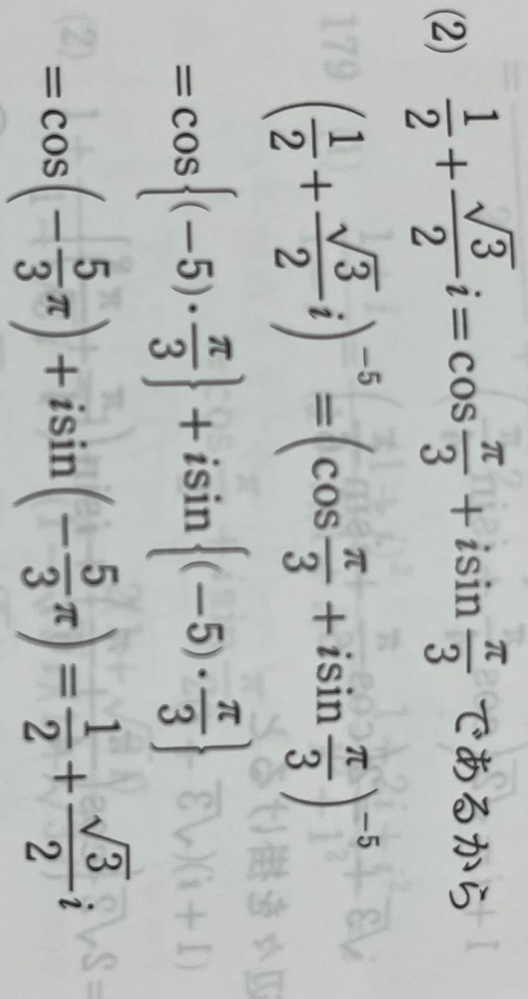 (2) 1/2 + √3/2 i = cos π/3 + i sin π/3 であるから
(1/2 + √3/2 i)^-5 = (cos π/3 + i sin π/3)^-5
= cos{(-5)·π/3} + i sin{(-5)·π/3}
= cos(-5/3 π) + i sin(-5/3 π) = 1/2 + √3/2 i